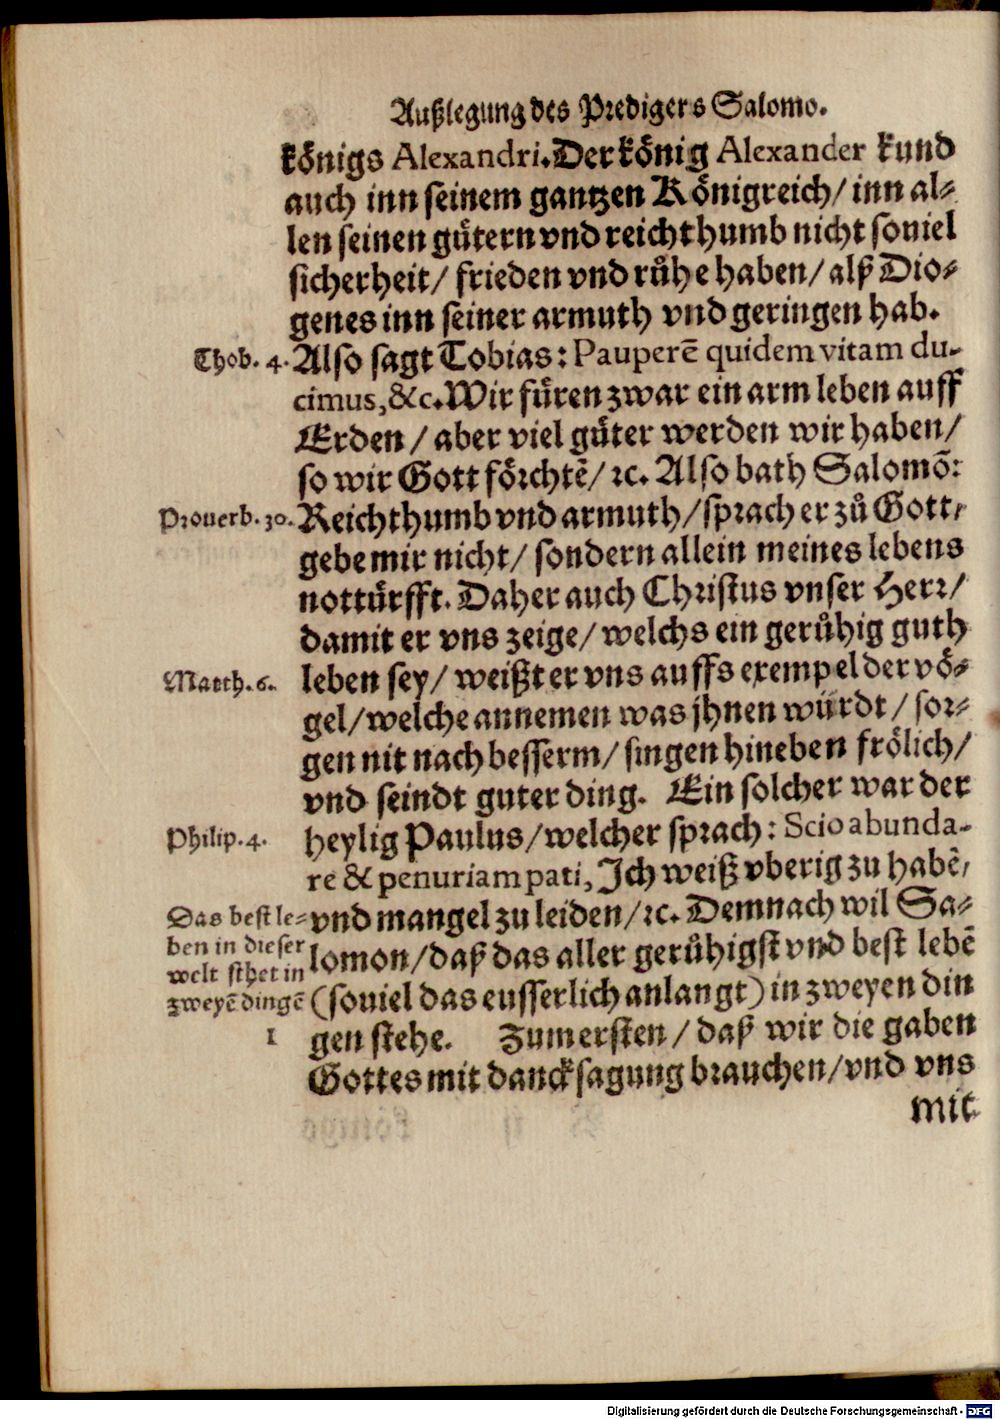 Außlegung des Predigers Salomo.
königs Alexandri. Der könig Alexander kund
auch inn seinem gantzen Königreich/ inn al⸗
len seinen gütern vnd reichthumb nicht souiel
sicherheit/ frieden vnd růhe haben/ alß Dio⸗
genes inn seiner armuth vnd geringen hab.
Thob. 4. Also sagt Tobias: Pauperē quidem vitam du-
cimus, &c. Wir füren zwar ein arm leben auff
Erden / aber viel güter werden wir haben/
so wir Gott förchtē/ ꝛc. Also bath Salomō:
Prouerb. 30. Reichthumb vnd armuth/ sprach er zů Gott,
gebe mir nicht/ sondern allein meines lebens
nottürfft. Daher auch Christus vnser Herr/
damit er vns zeige/ welchs ein gerůhig guth
Matth. 6. leben sey/ weißt er vns auffs exempel der vö⸗
gel/ welche annemen was jhnen würdt / sor⸗
gen nit nach besserm/ singen hineben frölich/
vnd seindt guter ding. Ein solcher war der
Philip. 4. heylig Paulus/ welcher sprach: Scio abunda-
re & penuriam pati, Jch weiß vberig zu habē,
Das best le⸗ vnd mangel zu leiden/ ꝛc. Demnach wil Sa⸗
ben in dieser lomon/ daß das aller gerůhigst vnd best lebē
welt sthet in
zweyē dingē (souiel das eusserlich anlangt) in zweyen din
1 gen stehe. Zum ersten / daß wir die gaben
Gottes mit dancksagung brauchen/ vnd vns
mit
Digitalisierung gefördert durch die Deutsche Forschungsgemeinschaft - DFG